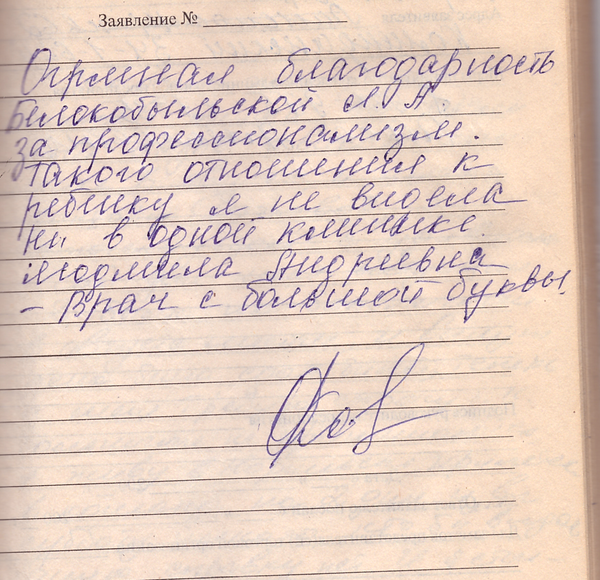 Заявление № ____________
Огромная благодарность
Белокобыльской Л. А.
за профессионализм.
Такого отношения к
ребёнку я не видела
ни в одной клинике.
Людмила Андреевна
- Врач с большой буквы.